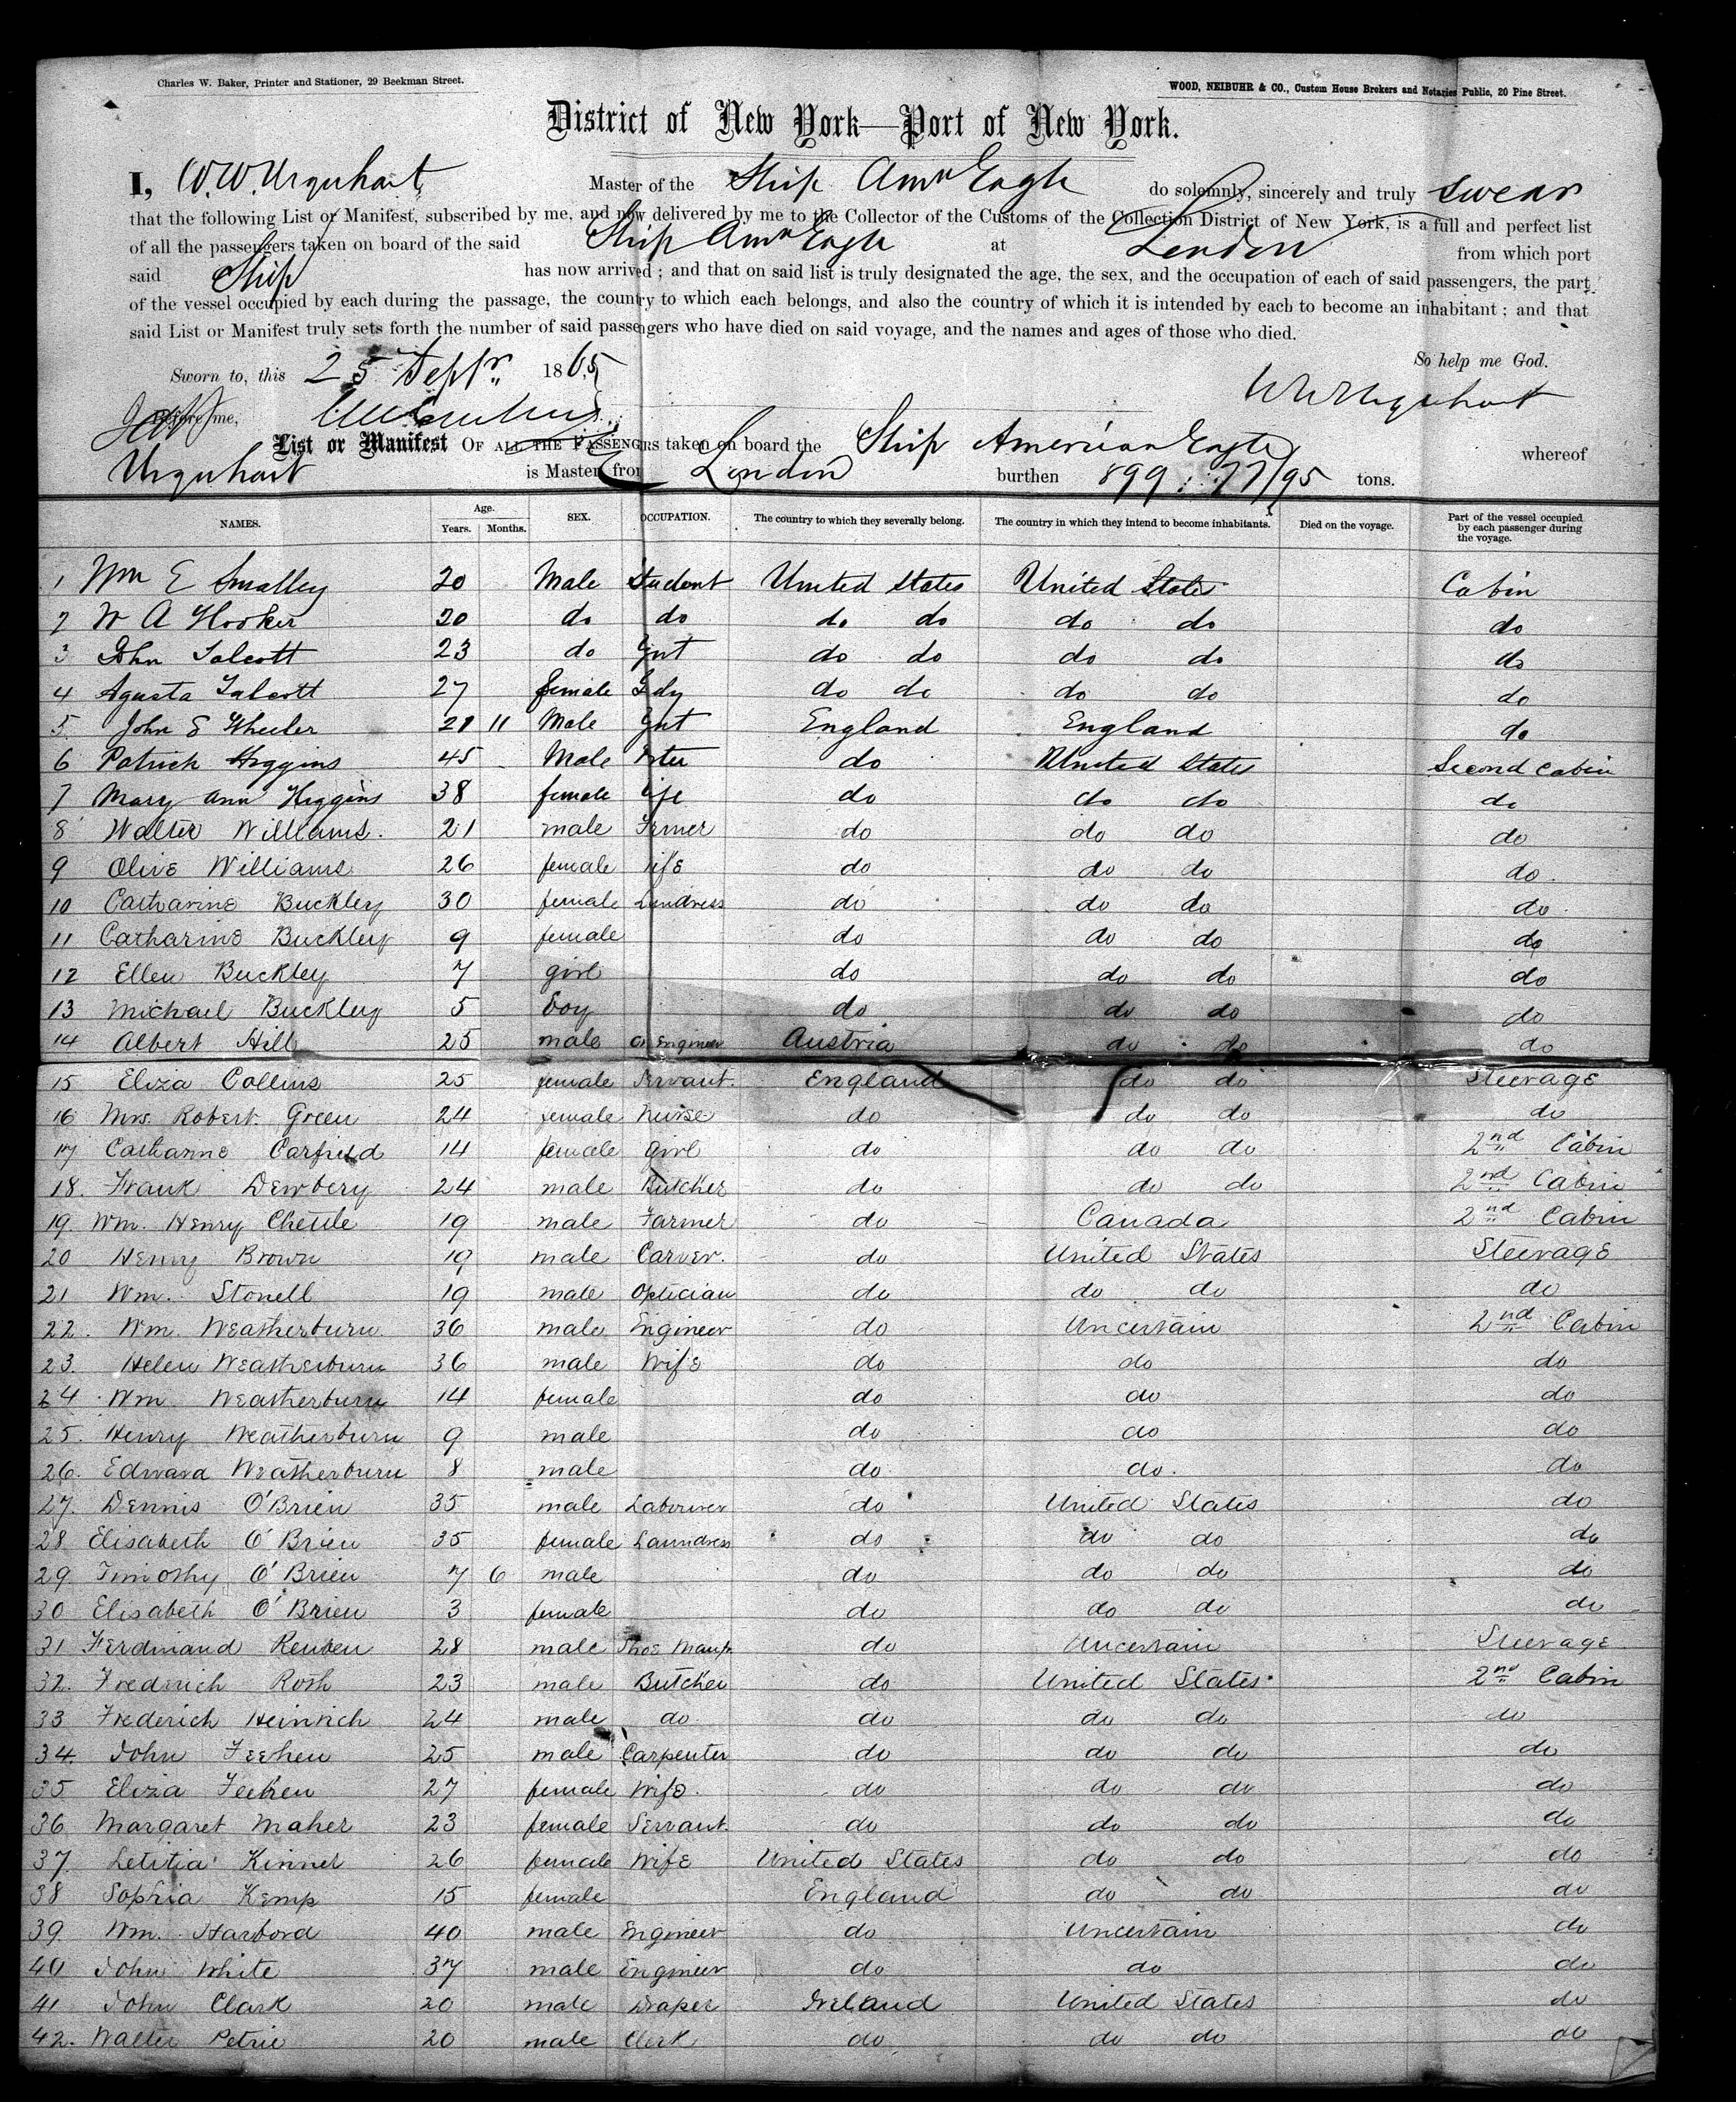 Charles W. Baker, Printer and Stationer, 29 Beekman Street.
WOOD, NEIBUHR & CO., Custom House Brokers and Notaries Public, 20 Pine Street.
District of New York—Port of New York.
I, W.W. Urquhart Master of the Ship Amn Eagle do solemnly, sincerely and truly swear
that the following List or Manifest, subscribed by me, and now delivered by me to the Collector of the Customs of the Collection District of New York, is a full and perfect list
of all the passengers taken on board of the said Ship Amn Eagle at London from which port
said Ship has now arrived; and that on said list is truly designated the age, the sex, and the occupation of each of said passengers, the part
of the vessel occupied by each during the passage, the country to which each belongs, and also the country of which it is intended by each to become an inhabitant; and that
said List or Manifest truly sets forth the number of said passengers who have died on said voyage, and the names and ages of those who died.
So help me God.
Sworn to, this 25 Septr. 1865
W W Urquhart
Before me,
List or Manifest OF ALL THE PASSENGERS taken on board the Ship American Eagle whereof
Urquhart is Master, from London burthen 899 : 77/95 tons.
NAMES. Age. Years. Months. SEX. OCCUPATION. The country to which they severally belong. The country in which they intend to become inhabitants. Died on the voyage. Part of the vessel occupied by each passenger during the voyage.
1 Wm E Smalley 20 Male Student United States United States Cabin
2 W A Hooker 20 do do do do do do do
3 John Talcott 23 do Gnt do do do do do
4 Agusta Talcott 27 female Ldy do do do do do
5. John S Wheeler 21 11 Male Gnt England England do
6 Patrick Higgins 45 Male do United States Second Cabin
7 Mary Ann Higgins 38 female ife do do do do
8 Walter Williams. 21 male Frmer do do do do
9 Olive Williams 26 female ife do do do do.
10 Catharine Buckley 30 female Lundress do do do do
11 Catharine Buckley 9 female do do do do
12 Ellen Buckley 7 girl do do do do
13 Michael Buckley 5 boy do do do do
14 Albert Hill 25 male Engineer Austria do do do
15 Eliza Collins 25 female Servant. England do do Steerage
16 Mrs. Robert Green 24 female Nurse do do do do
17 Catharine Carfield 14 female Girl do do do 2nd Cabin
18. Frank Dewbery 24 male Butcher do do do 2nd Cabin
19. Wm. Henry Chettle 19 male Farmer do Canada 2nd Cabin
20 Henry Brown 19 male Carver. do United States Steerage
21 Wm. Stonell 19 male Optician do do do do
22. Wm. Weatherburn 36 male Engineer do Uncertain 2nd Cabin
23. Helen Weatherburn 36 male Wife do do do
24 Wm Weatherburn 14 female do do do
25. Henry Weatherburn 9 male do do do
26. Edward Weatherburn 8 male do do. do
27. Dennis O'Brien 35 male Labourer do United States do
28 Elisabeth O'Brien 35 female Laundress do do do do
29 Timothy O'Brien 7 6 male do do do do
30 Elisabeth O'Brien 3 female do do do do
31 Ferdinand Reuben 28 male Shoe Manf. do Uncertain Steerage
32. Fredrich Rosh 23 male Butcher do United States 2nd Cabin
33 Frederich Heinrich 24 male do do do do do
34. John Feehen 25 male Carpenter do do do do
35 Eliza Feehen 27 female Wife. do do do do
36 Margaret Maher 23 female Servant. do do do do
37. Letitia Kinnel 26 female Wife United States do do do
38 Sophia Kemp 15 female England do do do
39. Wm. Harbord 40 male Engineer do Uncertain do
40 John White 37 male Engineer do do do
41 John Clark 20 male Draper Ireland United States do
42. Walter Petrie 20 male Clerk do do do do